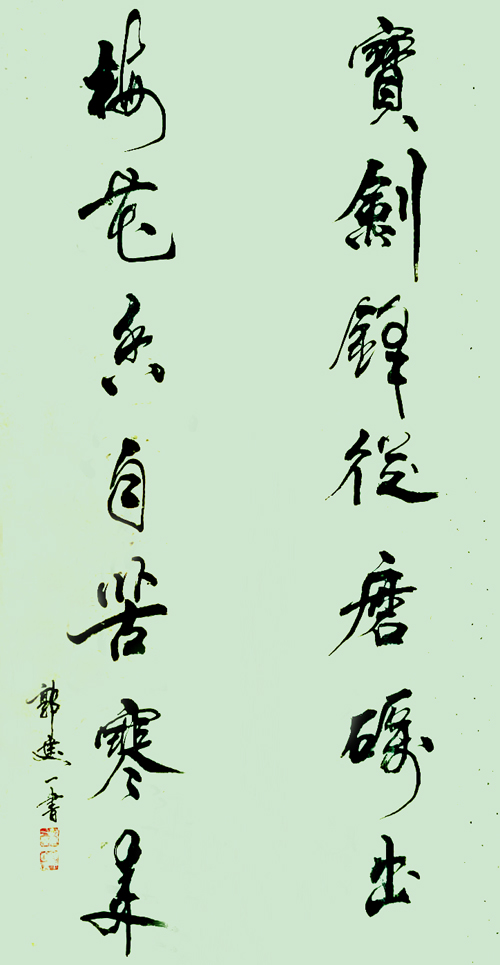 寶劍鋒從磨礪出
梅花香自苦寒来
郭建一書